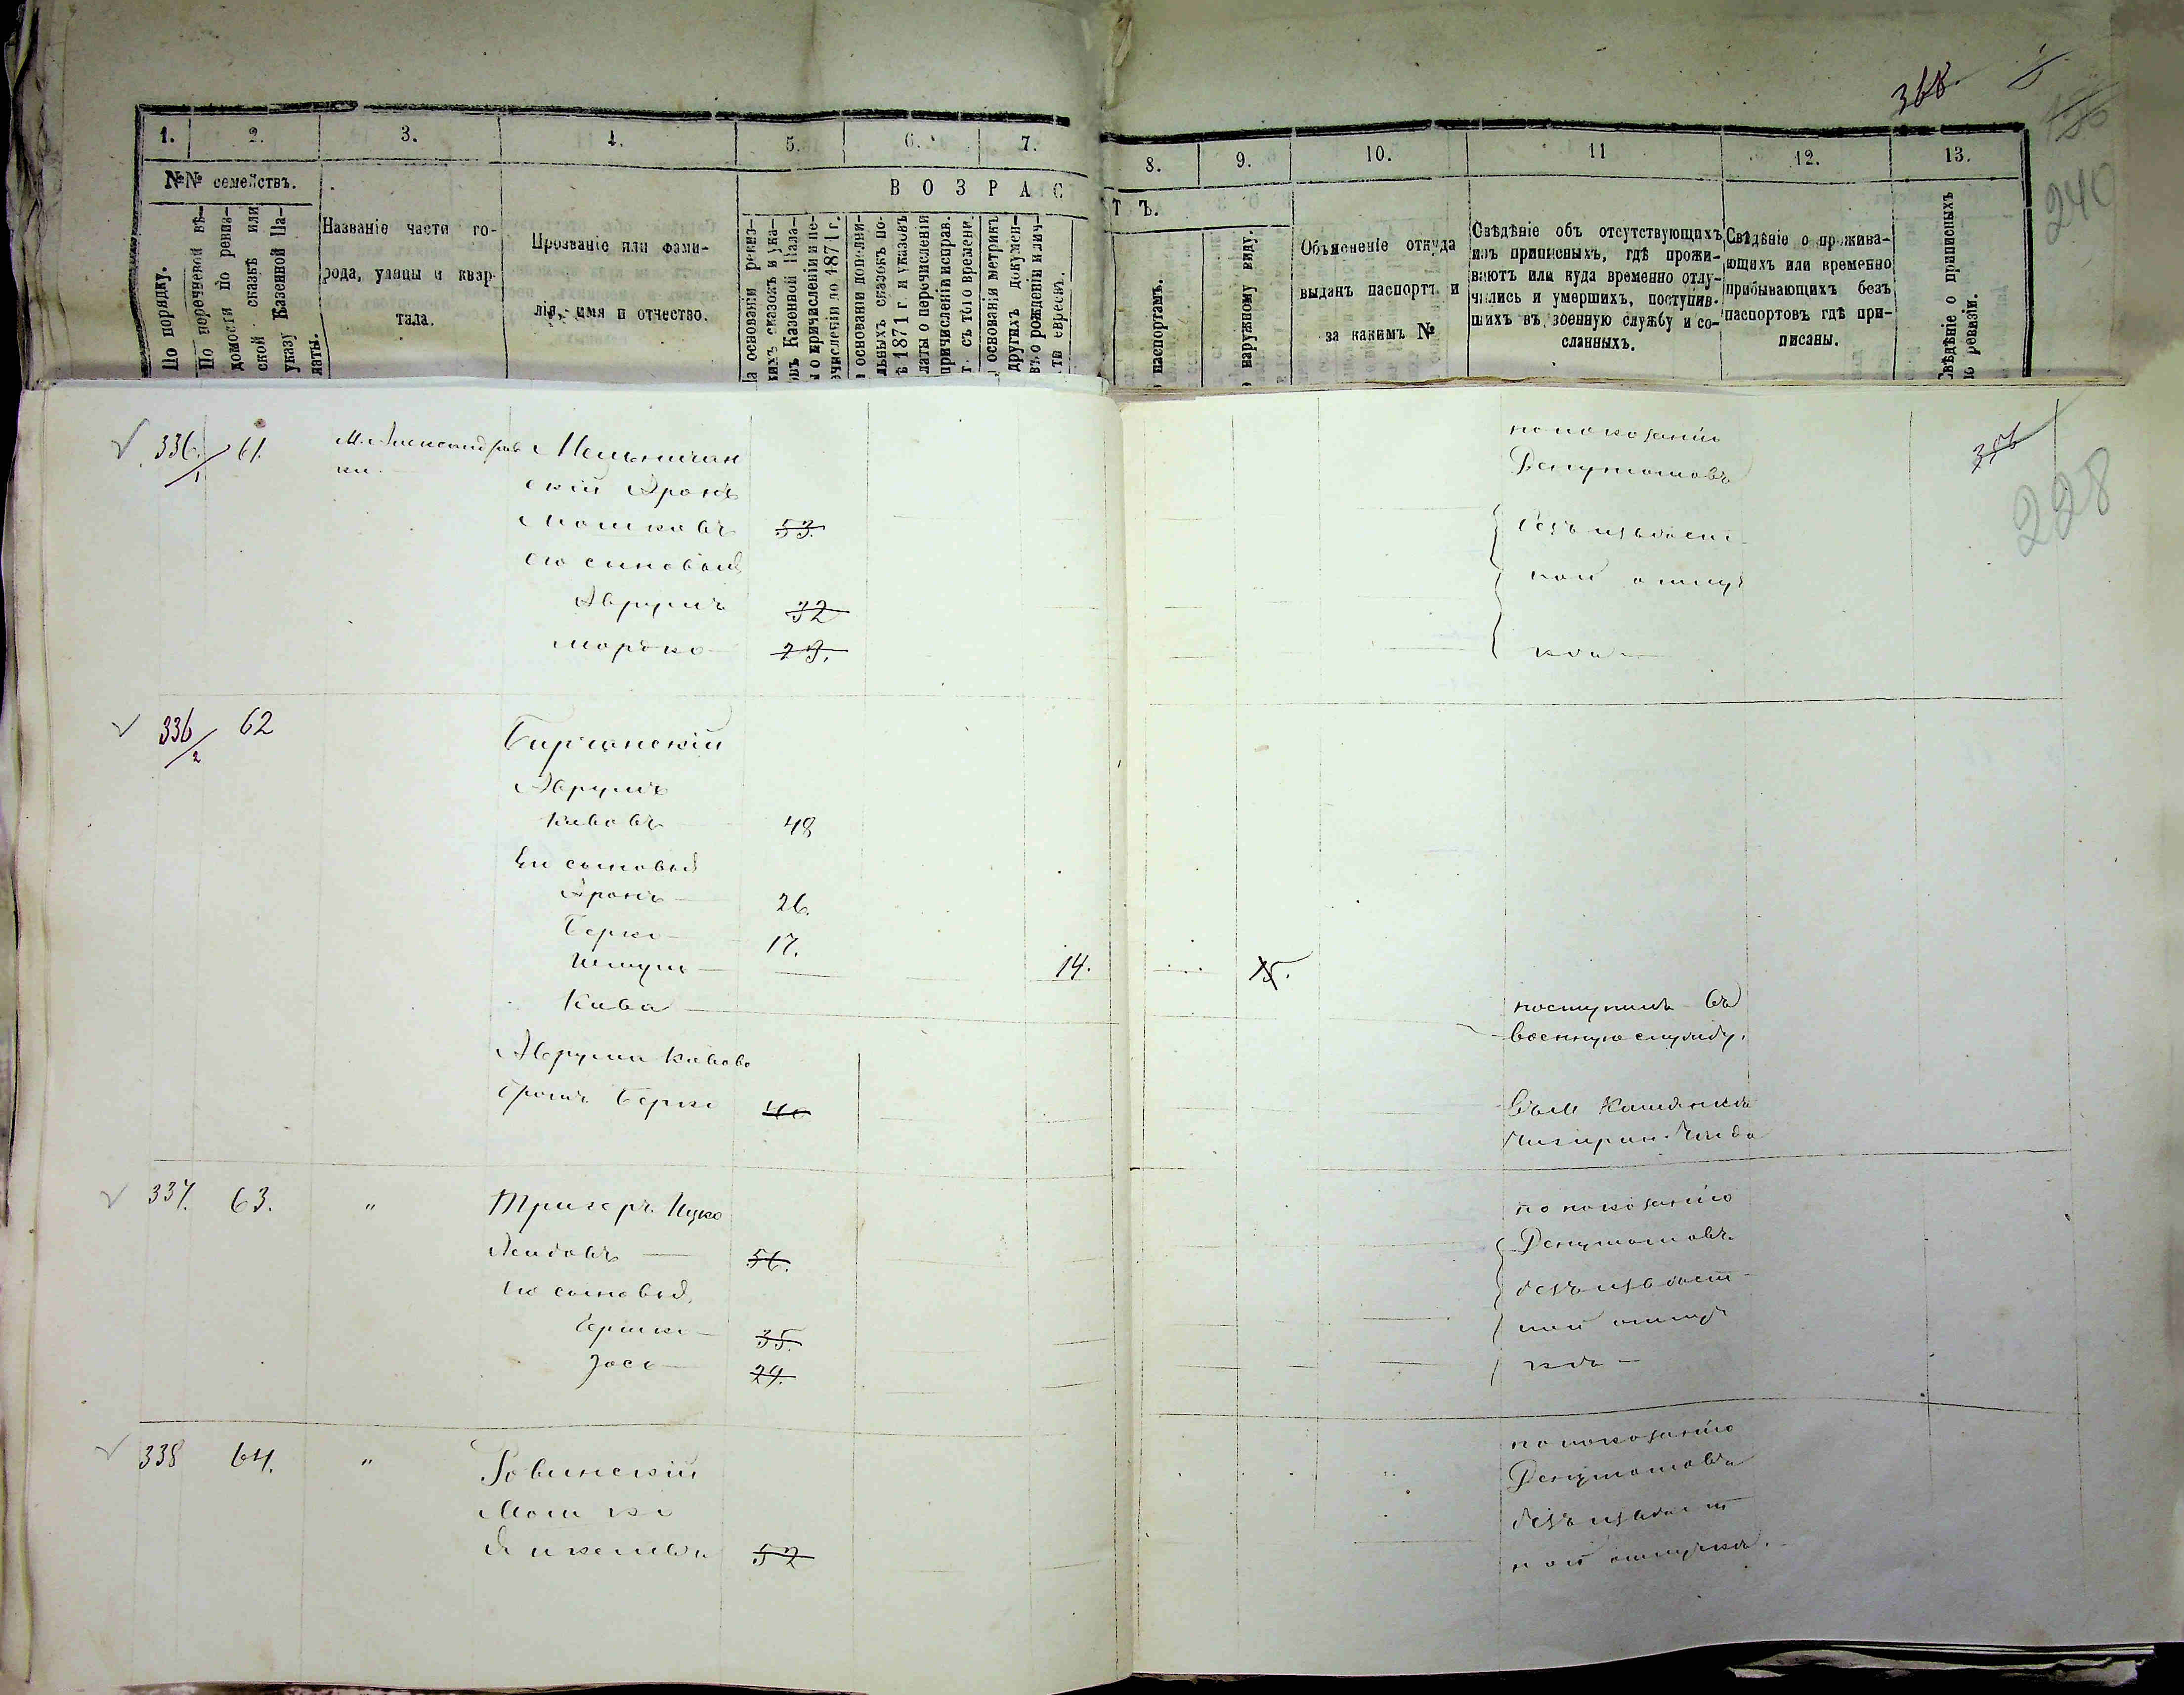 368
240
1. 2. 3. 4. 5. 6. 7. 8. 9. 10. 11 12. 13.
№№ семействъ.
В О З Р А С Т Ъ.
По порядку.
По перечневой вѣ-
домости по ревиз-
ской сказкѣ или
указу Казенной Па-
латы.
Названіе части го-
рода, улицы и квар-
тала.
Прозваніе или фами-
лія, имя и отчество.
а основаніи ревиз-
кихъ сказокъ и ука-
овъ Казенной Пала-
ы о причисленіи и пе-
ечисленіи до 1871 г.
основаніи дополни-
льныхъ сказокъ по-
ѣ 1871 г. и указовъ
латы о перечисленіи
причисленіи исправ.
г. съ того времени.
основаніи метрикъ
другихъ докумен-
въ о рожденіи и лич-
сти евреевъ.
паспортамъ.
наружному виду.
Объясненіе откуда
выданъ паспортъ и
за какимъ №
Свѣдѣніе объ отсутствующихъ
изъ приписныхъ, гдѣ прожи-
ваютъ или куда временно отлу-
чились и умершихъ, поступив-
шихъ въ военную службу и со-
сланныхъ.
Свѣдѣніе о прожива-
ющихъ или временно
прибывающихъ безъ
паспортовъ гдѣ при-
писаны.
Свѣдѣніе о приписныхъ
по ревизіи.
228
336/1 61. М. Александров
ки.
Мельничан
скій Аронъ
Мошковъ 53.
его сыновья
Аврумъ 32
Мордко 29.
по показанію
Депутатовъ
безъ извѣст
ной отлуч
кѣ
336/2 62
Бирганскій
Аврумъ
Кивовъ 48
Его сыновья
Аронъ 26.
Берко 17.
14. 15.
Кива
поступилъ въ
военную службу.
Аврума Кивова
братъ Берко 40
въ м.
Чигирин. уѣзда
337. 63. "
Тригеръ Ицко
Лейбовъ 56.
его сыновья
Гершко 35.
Іось 29.
по показанію
Депутатовъ
безъ извѣст
ной отлуч
кѣ
338 64. "
Ровинскій
Мошко
Янкелевъ 52
по показанію
Депутатовъ
безъ извѣст
ной отлучкѣ.